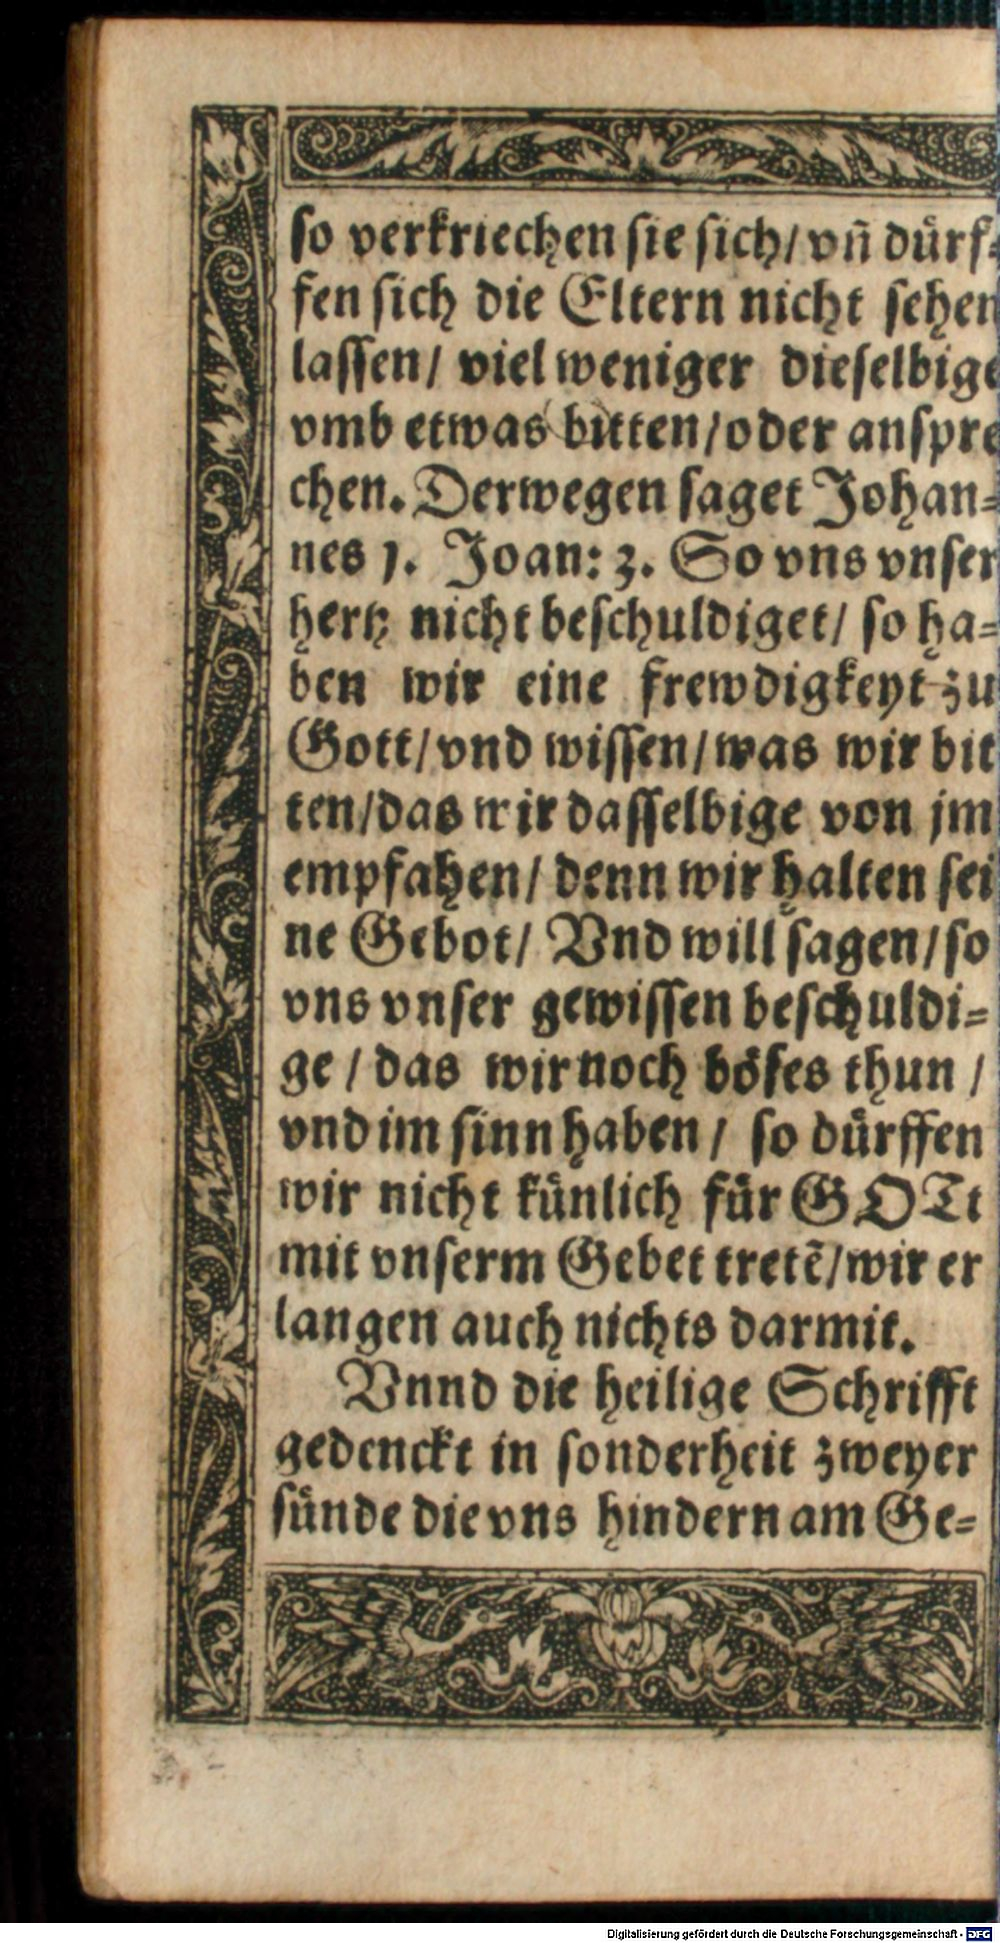 so verkriechen sie sich/ vñ dürf-
fen sich die Eltern nicht sehen
lassen/ viel weniger dieselbige
vmb etwas bitten/oder anspre
chen. Derwegen saget Johan-
nes 1. Joan: 3. So vns vnser
hertz nicht beschuldiget/ so ha-
ben wir eine frewdigkeyt zu
Gott/vnd wissen/was wir bit
ten/das wir dasselbige von jm
empfahen/ denn wir halten sei
ne Gebot/ Vnd will sagen/so
vns vnser gewissen beschuldi-
ge / das wir noch böses thun /
vnd im sinn haben / so dürffen
wir nicht künlich für GOTt
mit vnserm Gebet tretẽ/wir er
langen auch nichts darmit.
Vnnd die heilige Schrifft
gedenckt in sonderheit zweyer
sünde die vns hindern am Ge-
Digitalisierung gefördert durch die Deutsche Forschungsgemeinschaft - DFG